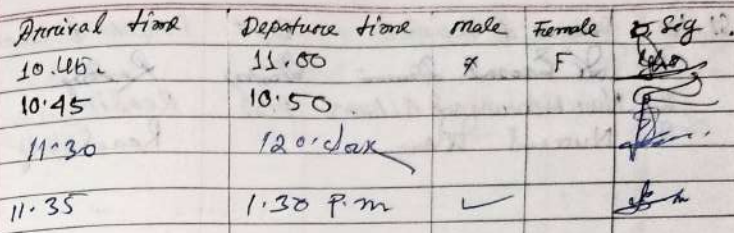 Arrival time Depature time male Female Sig
10.45. 11.00 x F
10.45 10.50.
11.30 12 o'clock
11.35 1.30 P.m ✓